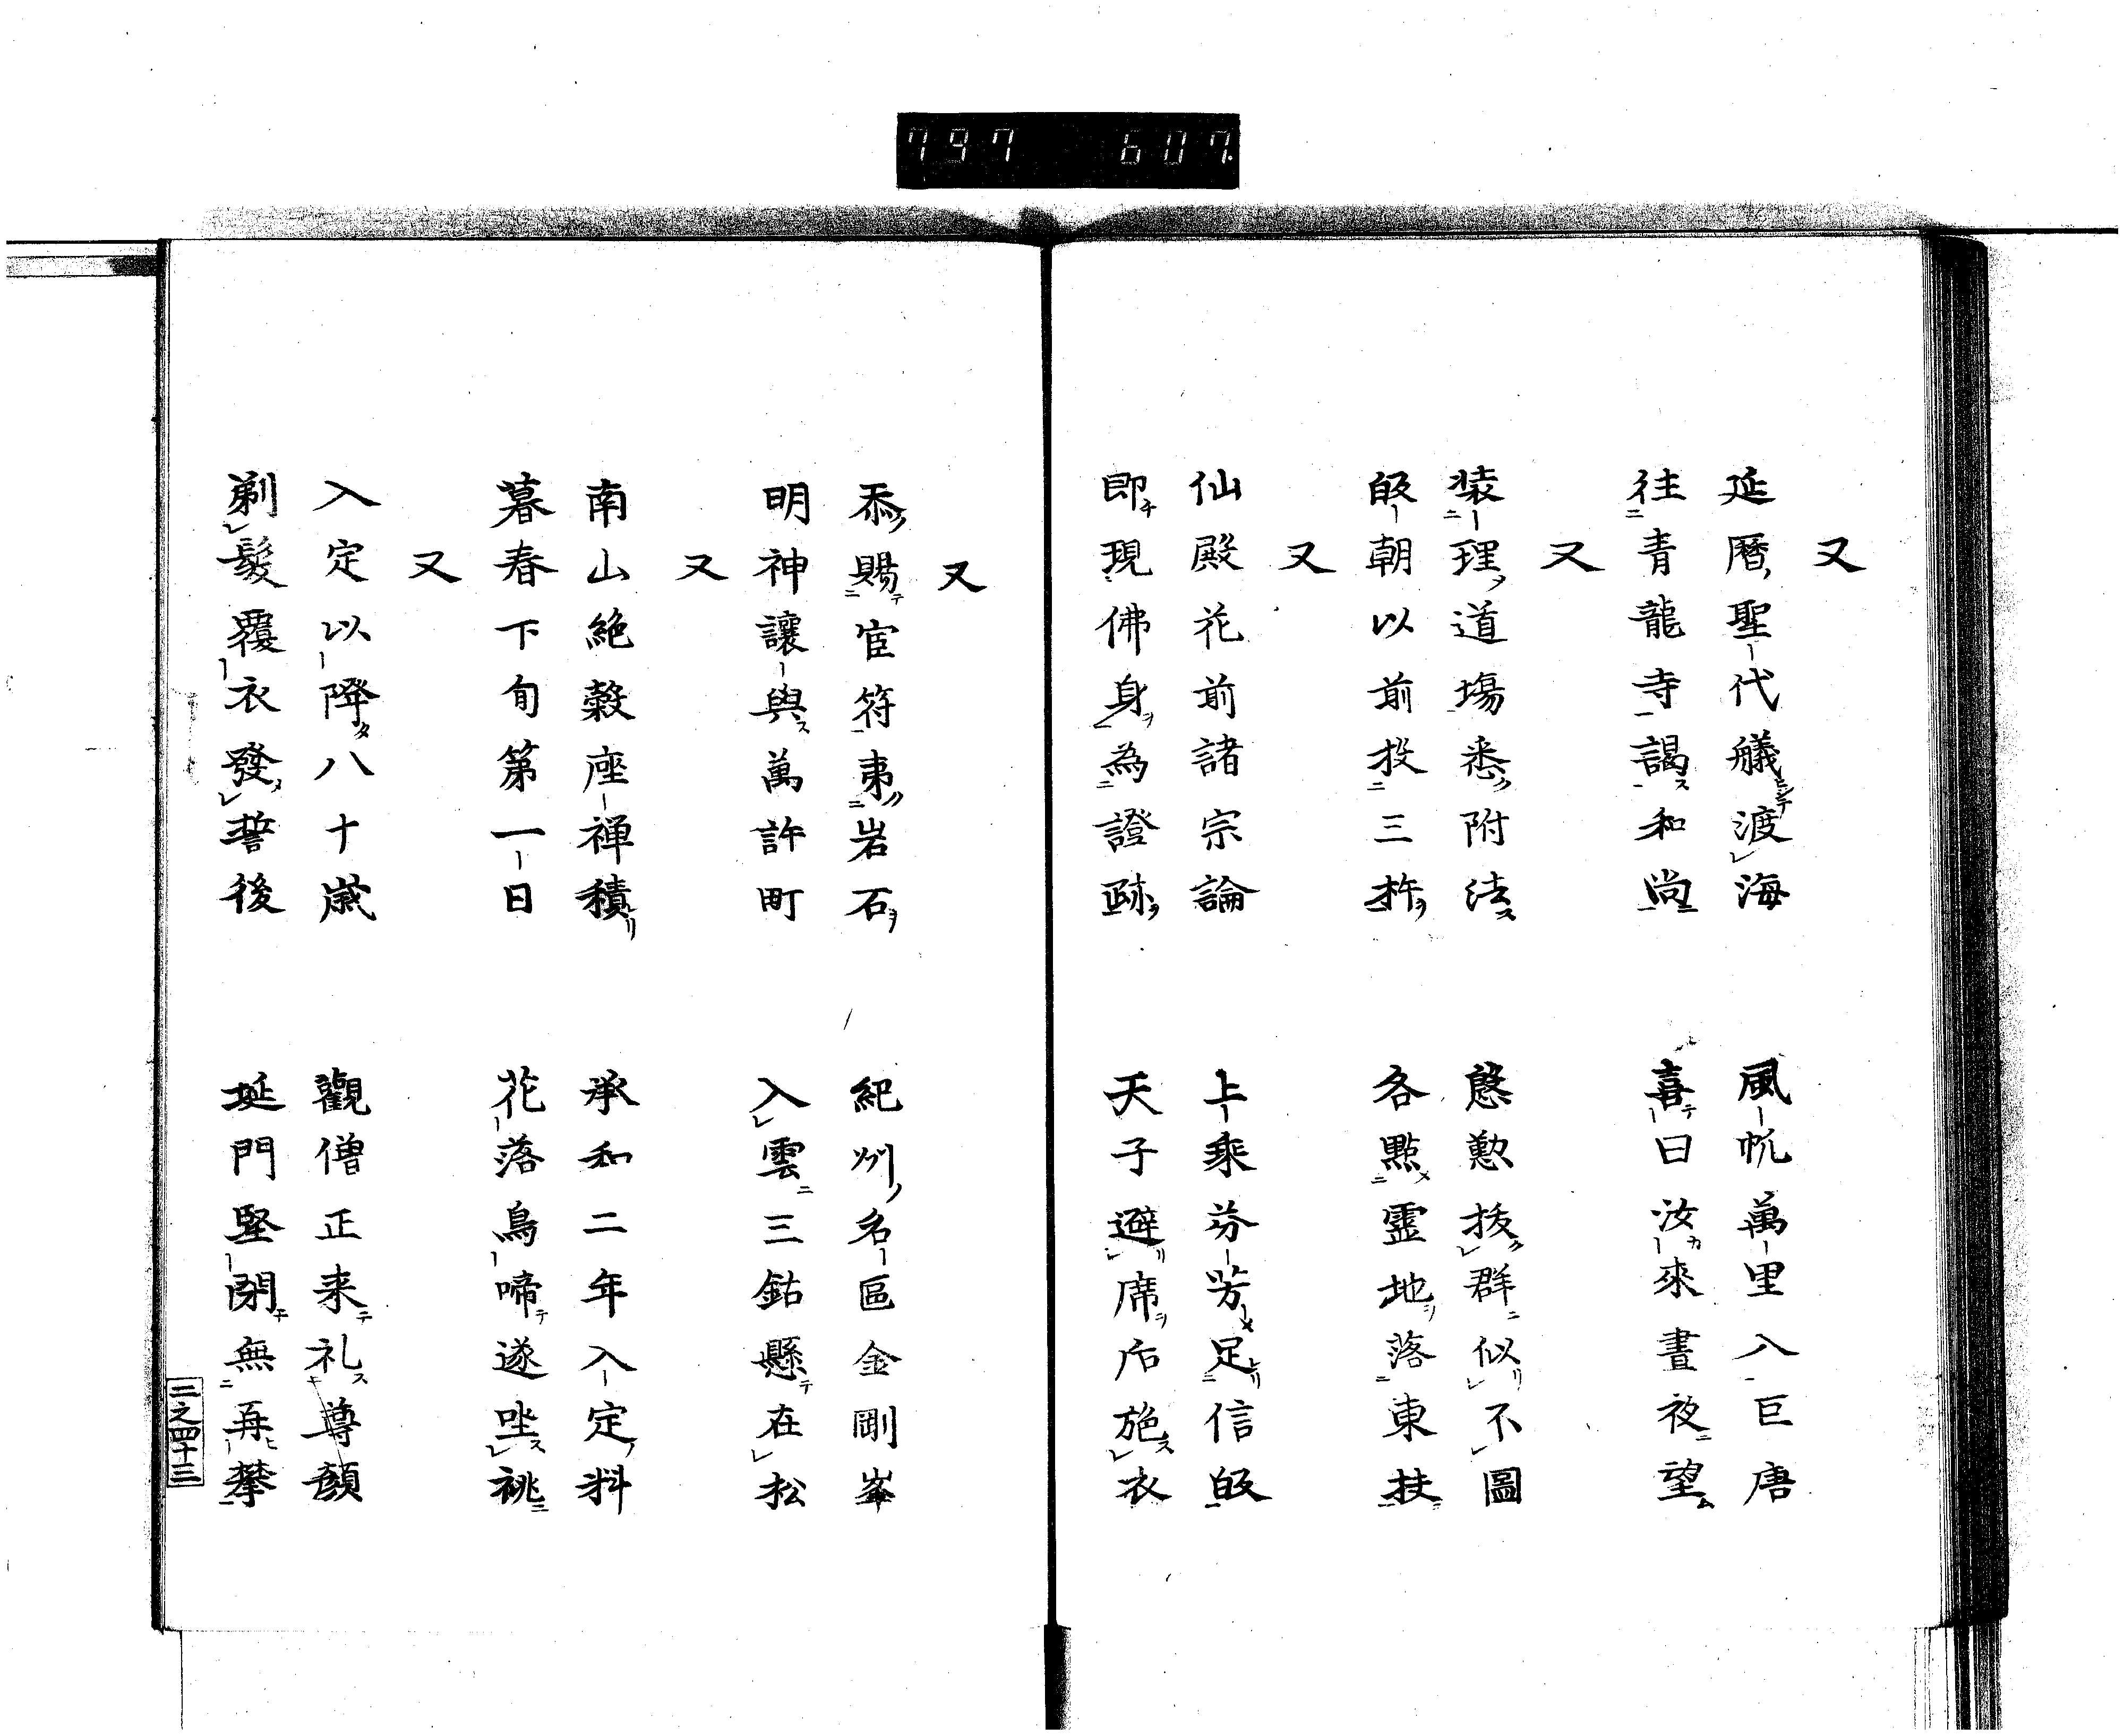 797 607
又
延暦聖代艤渡海 風帆萬里入巨唐
往青龍寺謁和尚 喜曰汝來晝夜望
又
裝理道場悉附法 慇懃拔群似不圖
皈朝以前投三杵 各點靈地落東扶
又
仙殿花前諸宗論 上乘芬芳足信皈
即現佛身為證跡 天子避席后施衣
又
忝賜官符東岩石 紀州名區金剛峯
明神讓與萬許町 入雲三鈷懸在松
又
南山絶穀座禅積 承和二年入定料
暮春下旬第一日 花落鳥啼遂坐祧
又
入定以降八十歳 觀僧正来礼尊顔
剃髮覆衣發誓後 埏門堅閉無再攀
二之四十三